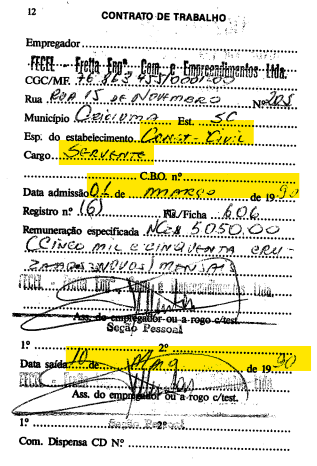 12 CONTRATO DE TRABALHO
Empregador
FECEL - Fretta Engº. Com. e Empreendimentos Ltda.
CGC/MF. 76.863.457/0001-00
Rua RUA 15 DE NOVEMBRO Nº 205
Município CRICIUMA Est. SC
Esp. do estabelecimento CONST. CIVIL
Cargo SERVENTE
C.B.O. nº
Data admissão 01 de MARÇO de 1990
Registro nº (6) Fls/Ficha 606
Remuneração especificada NCz$ 5050.00
(CINCO MIL E CINQUENTA CRU-
ZADOS NOVOS) MENSAIS
Ass. do empregador ou a rogo c/test.
Seção Pessoal
1º 2º
Data saída 10 de de 1990
Ass. do empregador ou a rogo c/test.
Seção Pessoal
1º 2º
Com. Dispensa CD Nº